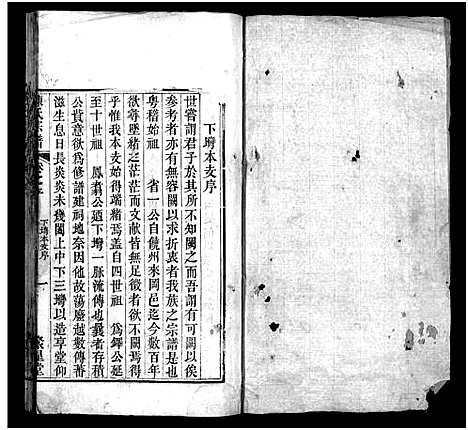 下塆本支序
世嘗謂君子於其所不知闕之而謂有可闕以俟
參考者亦有無容闕以求折衷者我族之宗譜是也
粵稽始祖　省一公自饒州來岡邑迄今數百年
欲尋墜緒之茫茫而文献皆無足徵欲不闕焉得
乎惟我本支始得端緒焉蓋自四世祖　為鐸公延
至十世祖　鳳翥公延下塆一脈流傳也義者存積
公貲意欲為修譜建祠地奈因他故蕩廢越數傳蕃
滋生息日長炎炎未幾閤上中下三塆以造享堂仰
氏宗譜
下塆本支序
一